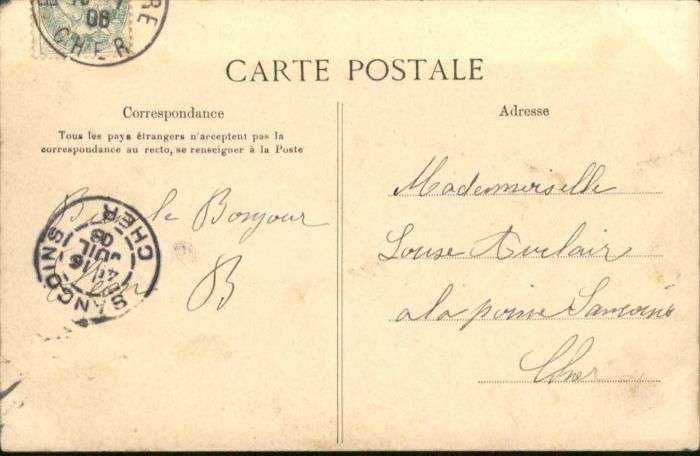 RE
06
CHER
CARTE POSTALE
Correspondance
Tous les pays étrangers n'acceptent pas la
correspondance au recto, se renseigner à la Poste
Bonjour
B
SANCOINS
4E
16
JUIL
06
CHER
Adresse
Mademoiselle
Louse Auclair
a la poine Sancoins
Cher